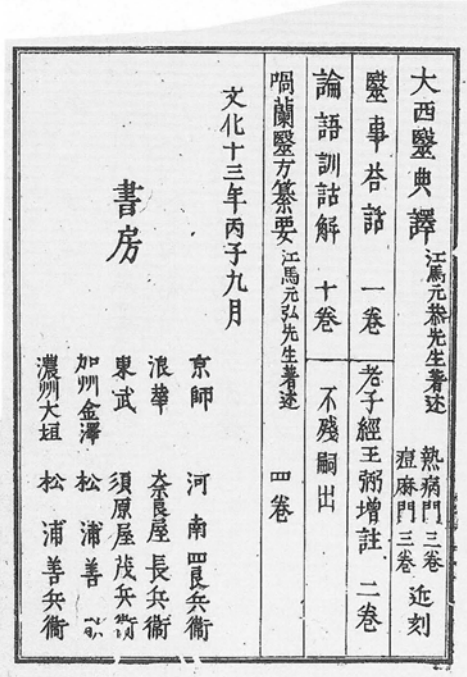 大西毉典譯 江馬元恭先生著述 熱病門 三卷 近刻
痘麻門 三卷
毉事荅話 一卷
老子經王弼增註 二卷
論語訓詁解 十卷
不殘嗣出
喎蘭毉方纂要 江馬元弘先生著述 四卷
文化十三年丙子九月
書房
京師 河南四良兵衞
浪華 奈良屋長兵衞
東武 須原屋茂兵衞
加州金澤 松浦善
濃州大垣 松浦善兵衞